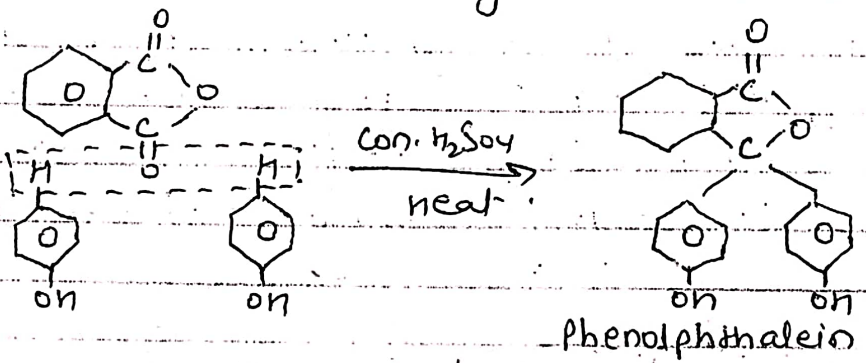 O
C
O
O
C
O
H H
O O
OH OH
con. H₂SO₄
heat.
O
C
O
C
O O
OH OH
Phenolphthalein